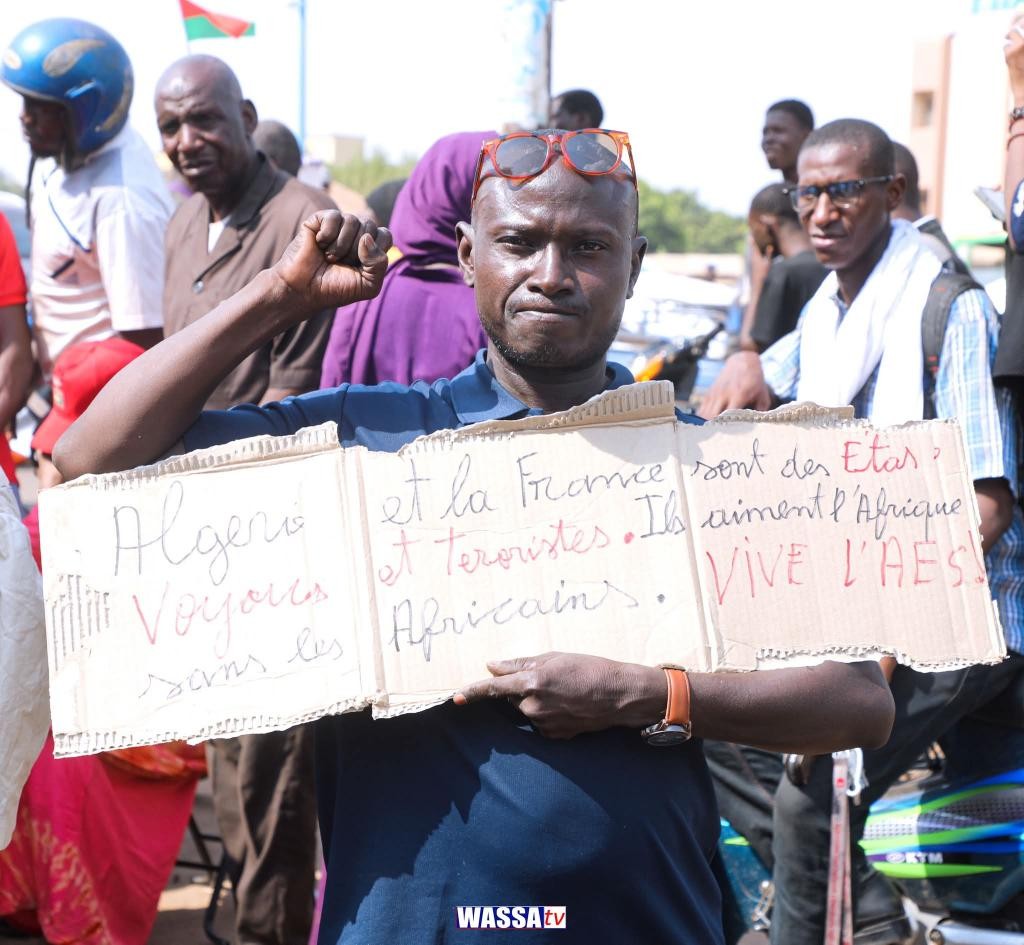 Algerie et la France sont des Etas,
Voyous et teroristes. Ils aiment l'Afrique
sans les Africains. VIVE L'AES!
KTM
WASSA tv